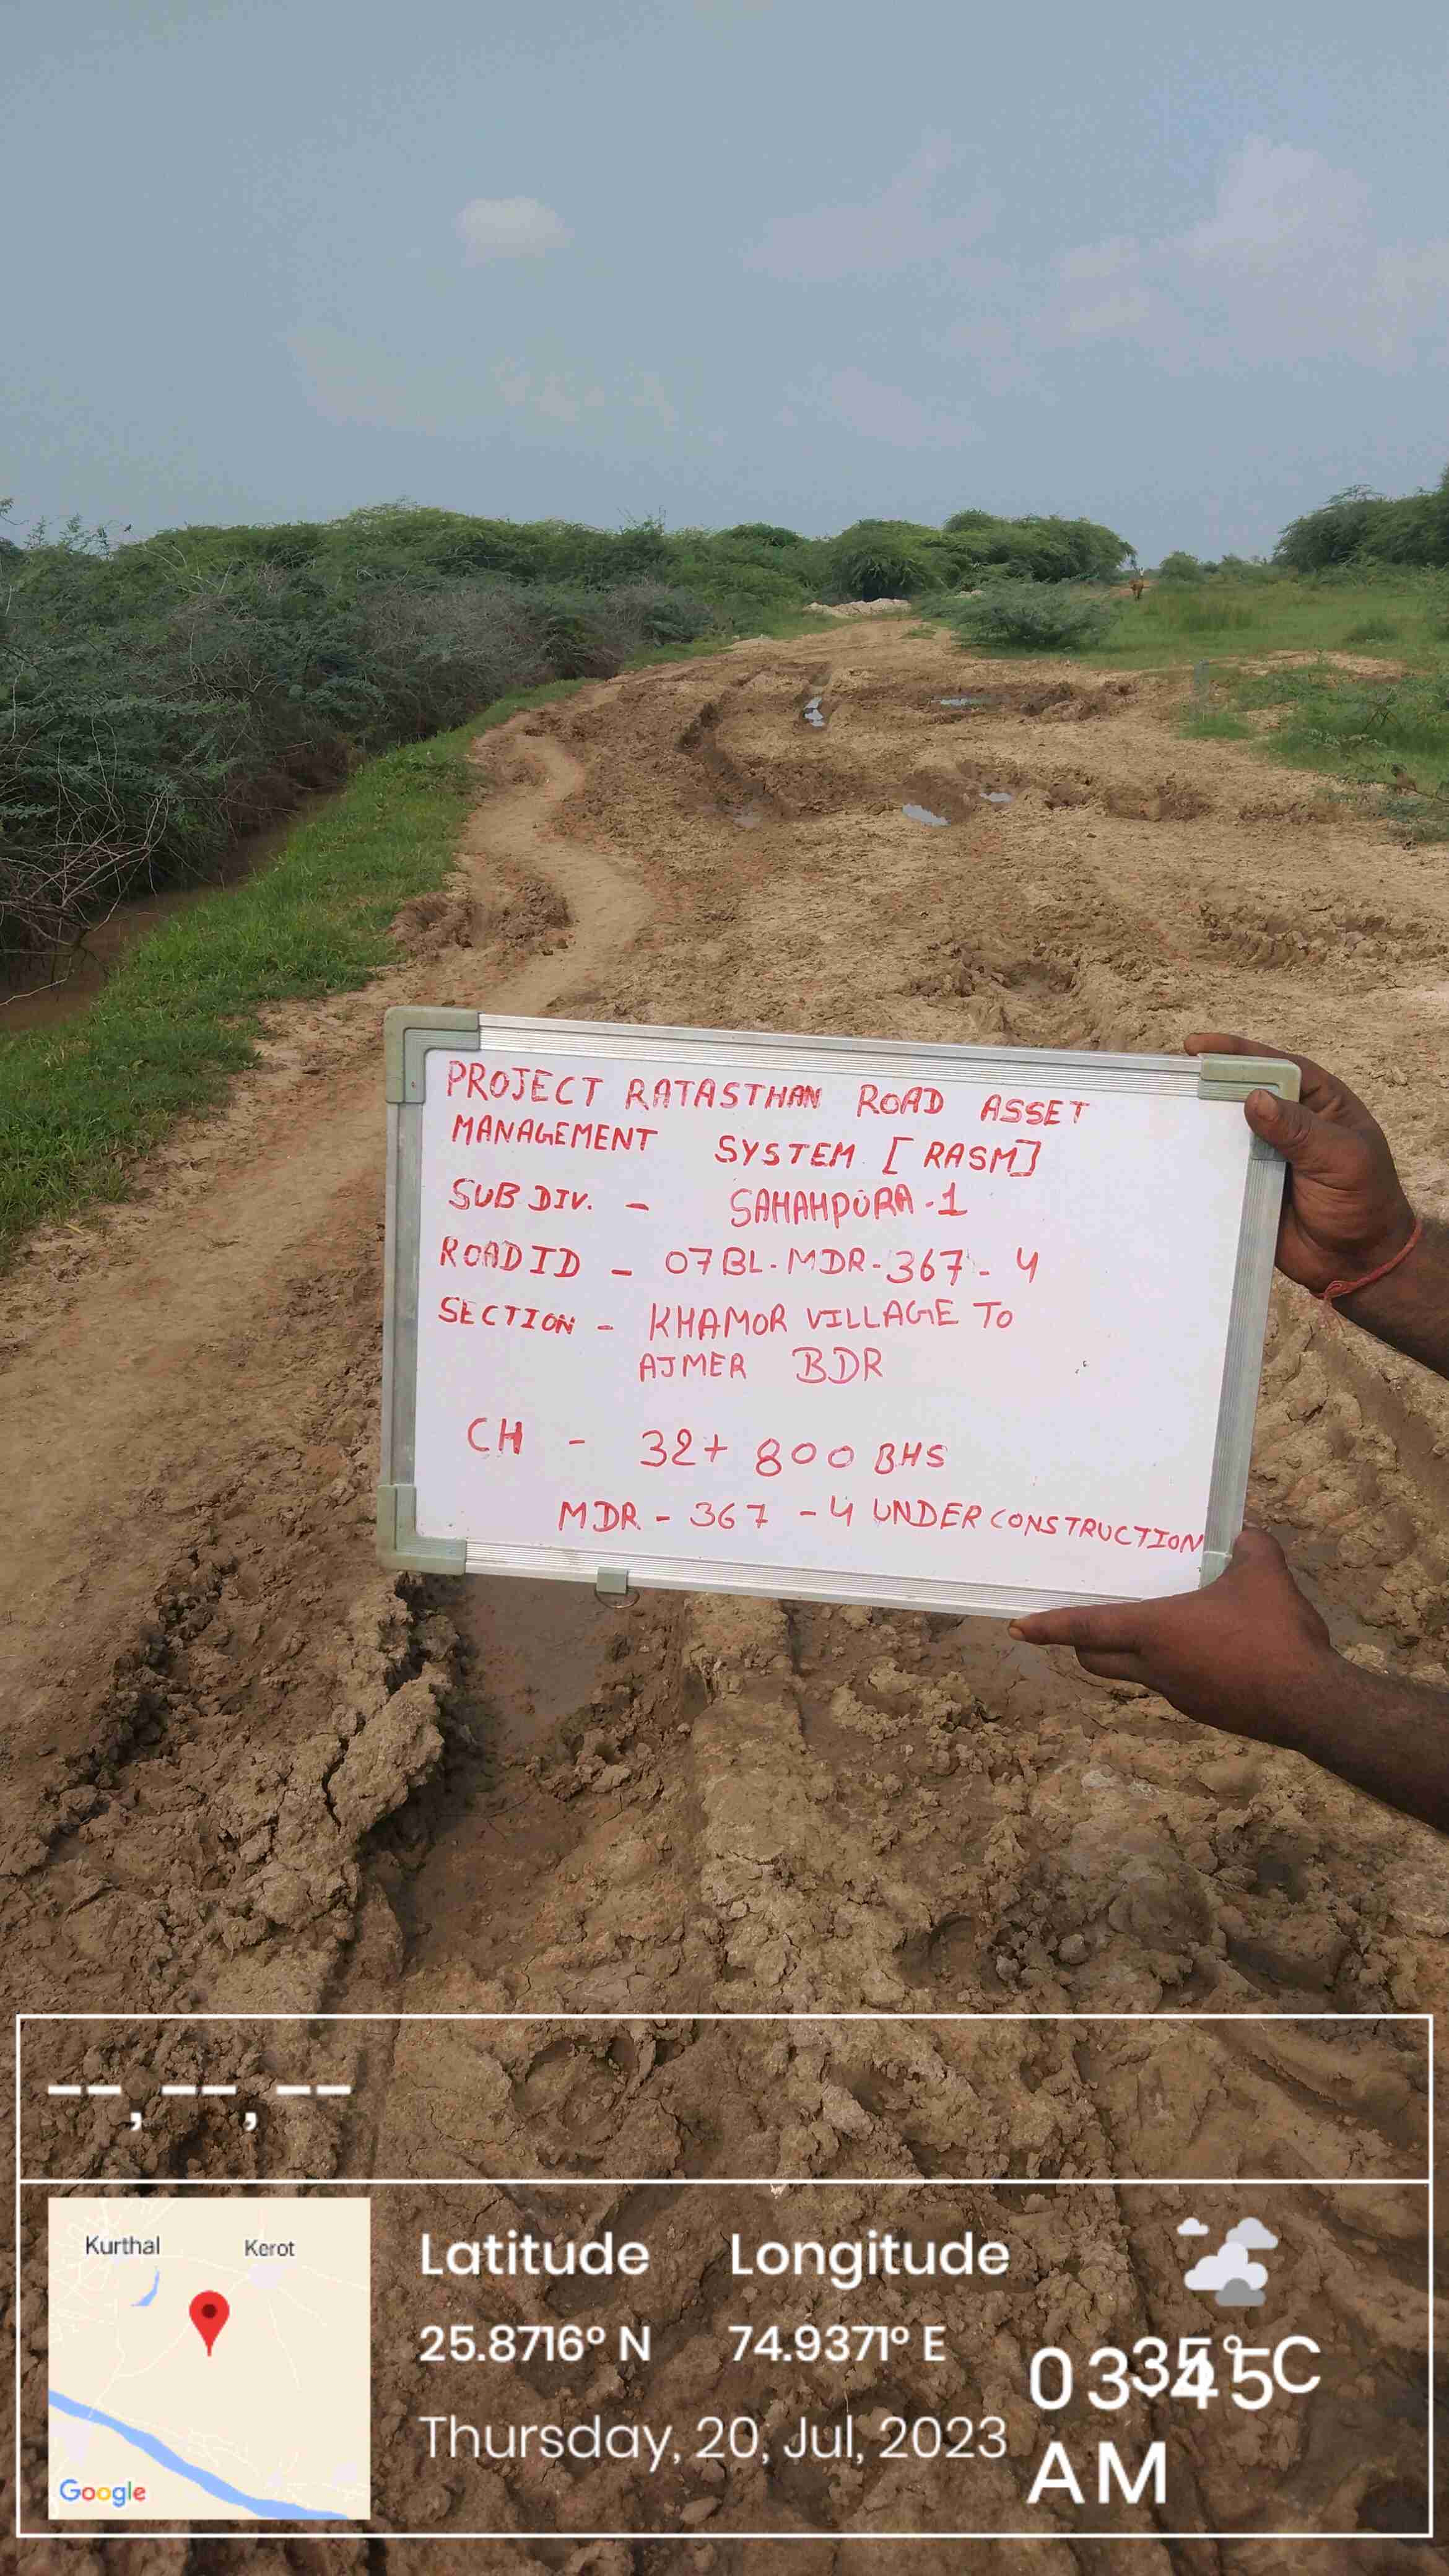 PROJECT RATASTHAN ROAD ASSET
MANAGEMENT SYSTEM [RASM]
SUB DIV. - SAHAHPURA-1
ROAD ID - 07BL-MDR-367-4
SECTION - KHAMOR VILLAGE TO
AJMER BDR
CH - 32+800 BHS
MDR-367-4 UNDER CONSTRUCTION
--, --, --
Kurthal Kerot
Google
Latitude Longitude
25.8716° N 74.9371° E
Thursday, 20, Jul, 2023
AM